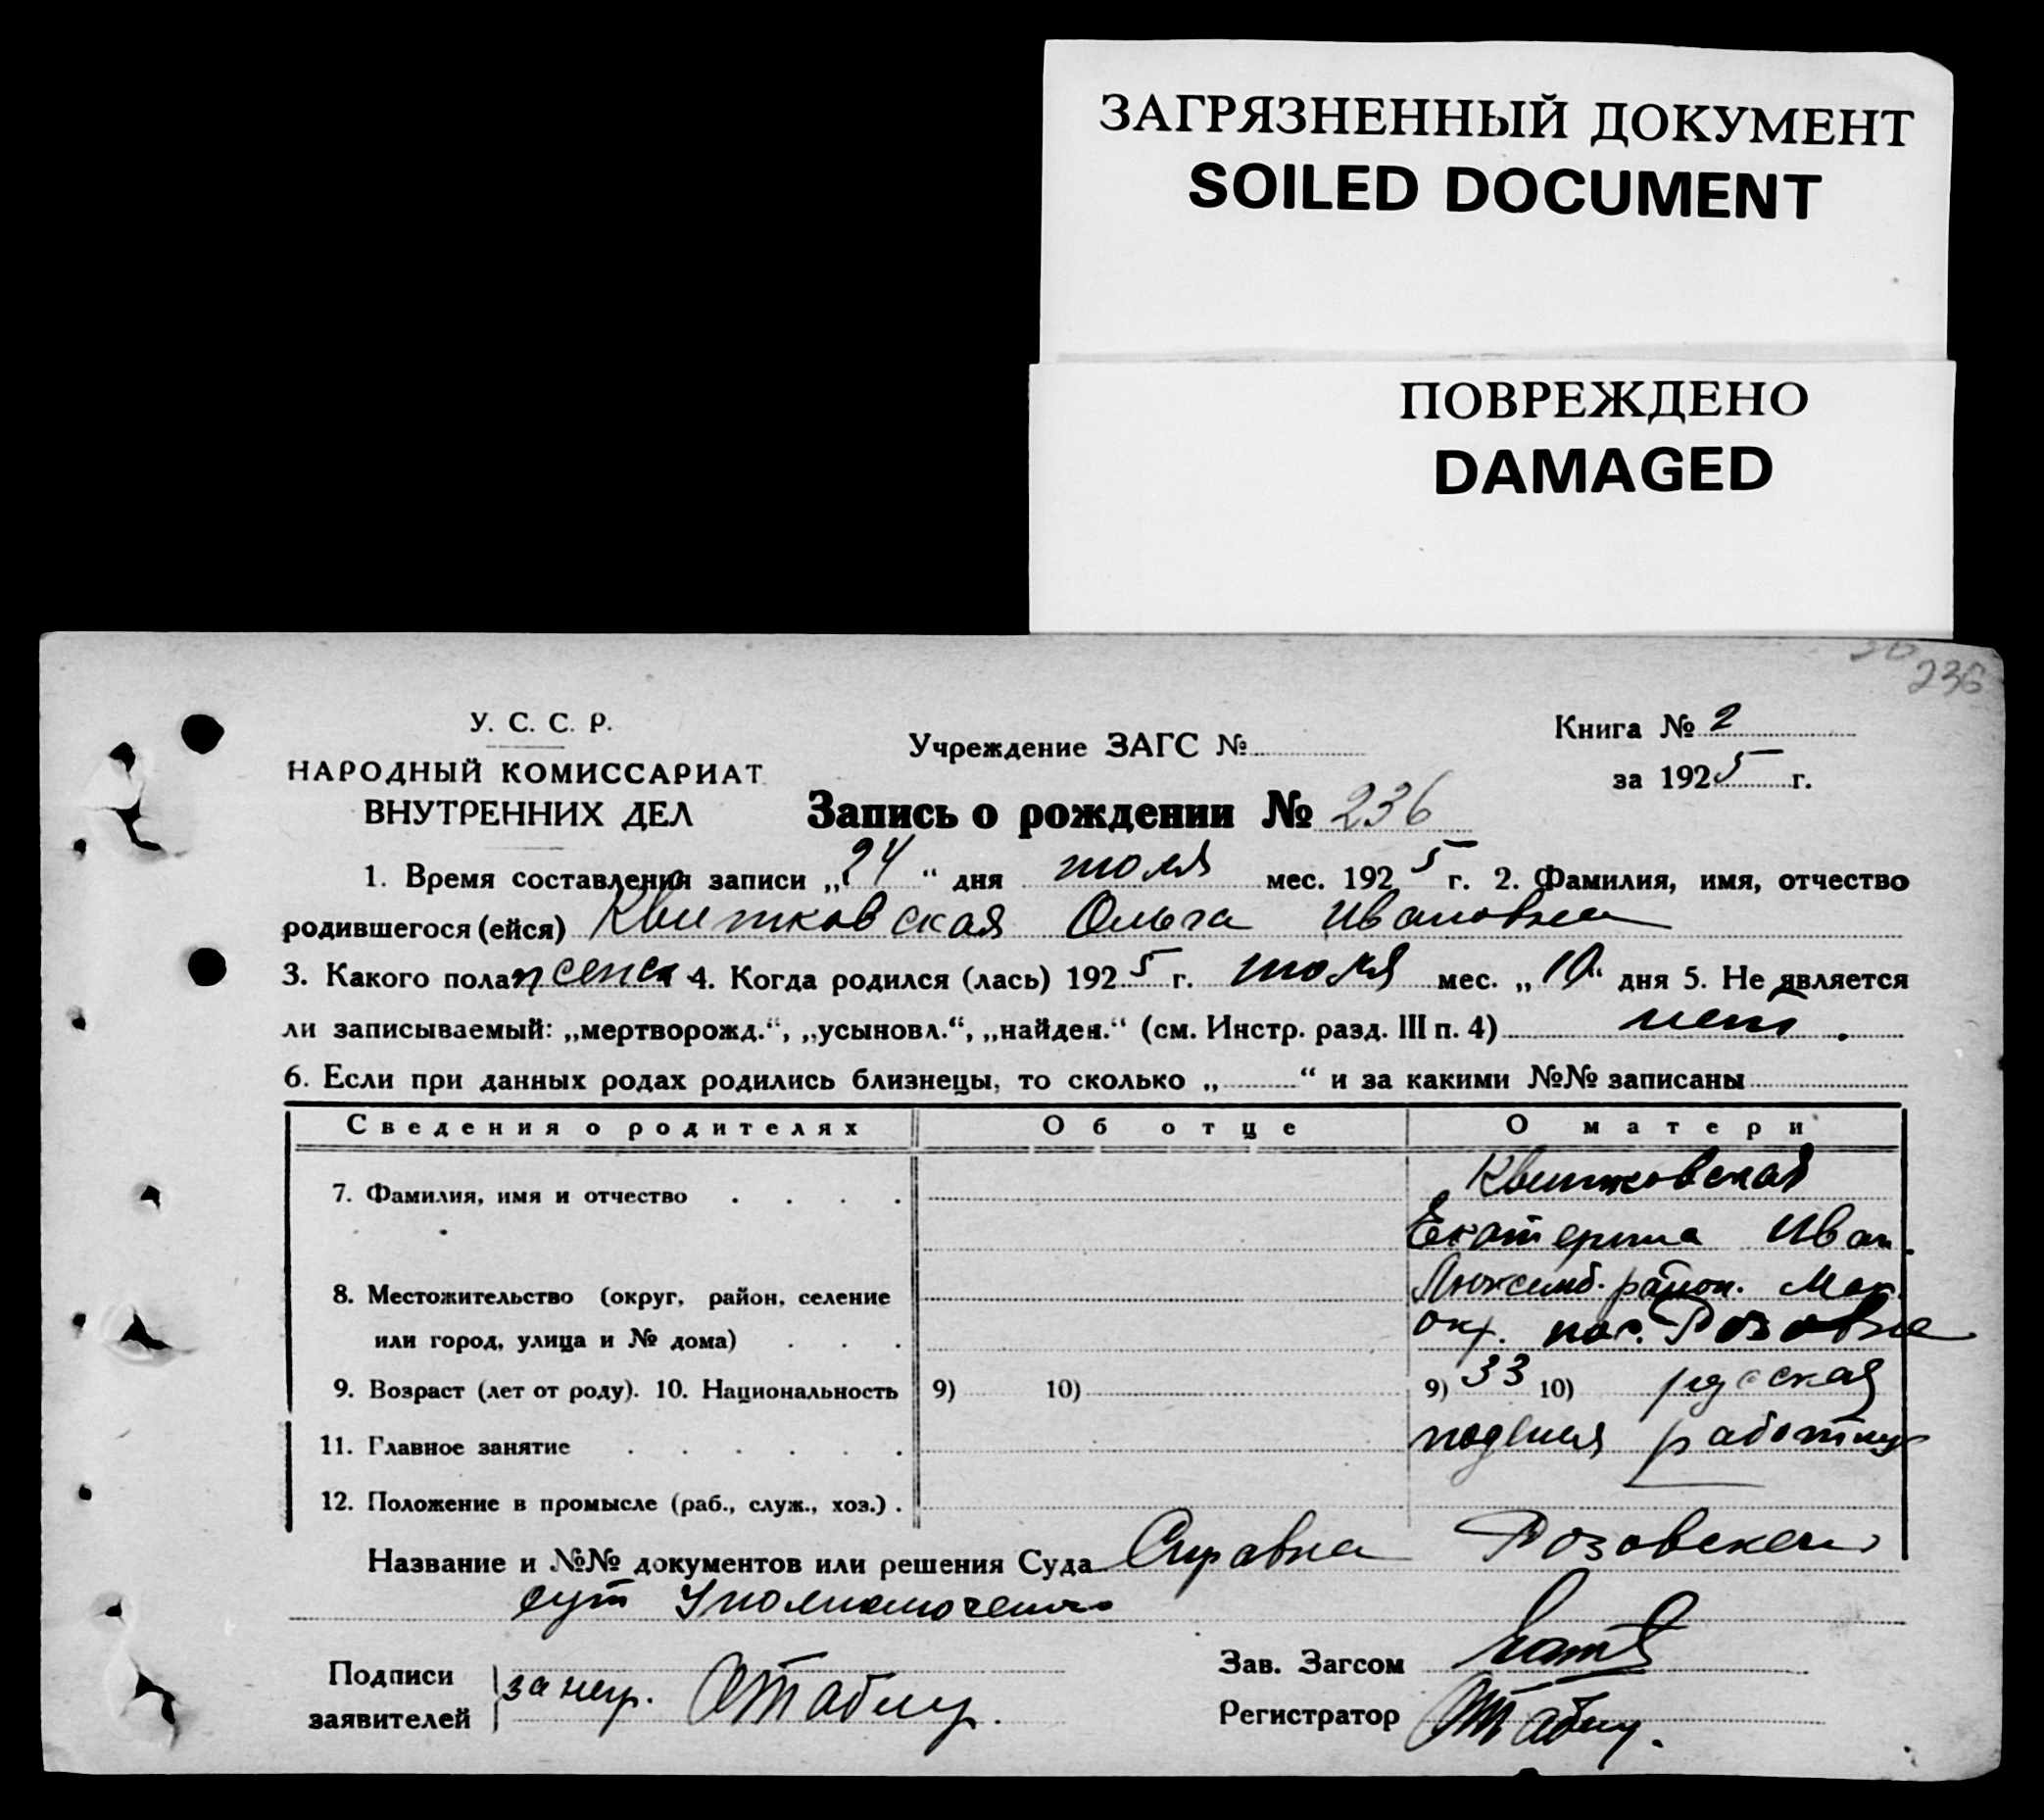 ЗАГРЯЗНЕННЫЙ ДОКУМЕНТ
SOILED DOCUMENT
ПОВРЕЖДЕНО
DAMAGED
236
У. С. С. Р.
НАРОДНЫЙ КОМИССАРИАТ
ВНУТРЕННИХ ДЕЛ
Учреждение ЗАГС №
Книга № 2
за 1925 г.
Запись о рождении № 236
1. Время составления записи „24“ дня июля мес. 1925 г. 2. Фамилия, имя, отчество
родившегося (ейся) Квитковская Ольга Ивановна
3. Какого пола женск 4. Когда родился (лась) 1925 г. июля мес. „10“ дня 5. Не является
ли записываемый: „мертворожд.“, „усыновл.“, „найден.“ (см. Инстр. разд. III п. 4) нет.
6. Если при данных родах родились близнецы, то сколько „ “ и за какими №№ записаны
Сведения о родителях Об отце О матери
7. Фамилия, имя и отчество . . . . Квитковская
Екатерина Иван.
8. Местожительство (округ, район, селение Люксемб. район. Мар.
или город, улица и № дома) . . . окр. кол. Розовка
9. Возраст (лет от роду). 10. Национальность 9) 10) 9) 33 10) русская
11. Главное занятие . . . . . . поденая работниц
12. Положение в промысле (раб., служ., хоз.) .
Название и №№ документов или решения Суда Справка Розовского
Уполномоченого
Подписи
заявителей
за негр. ОТабиц.
Зав. Загсом
Регистратор ОТабиц.